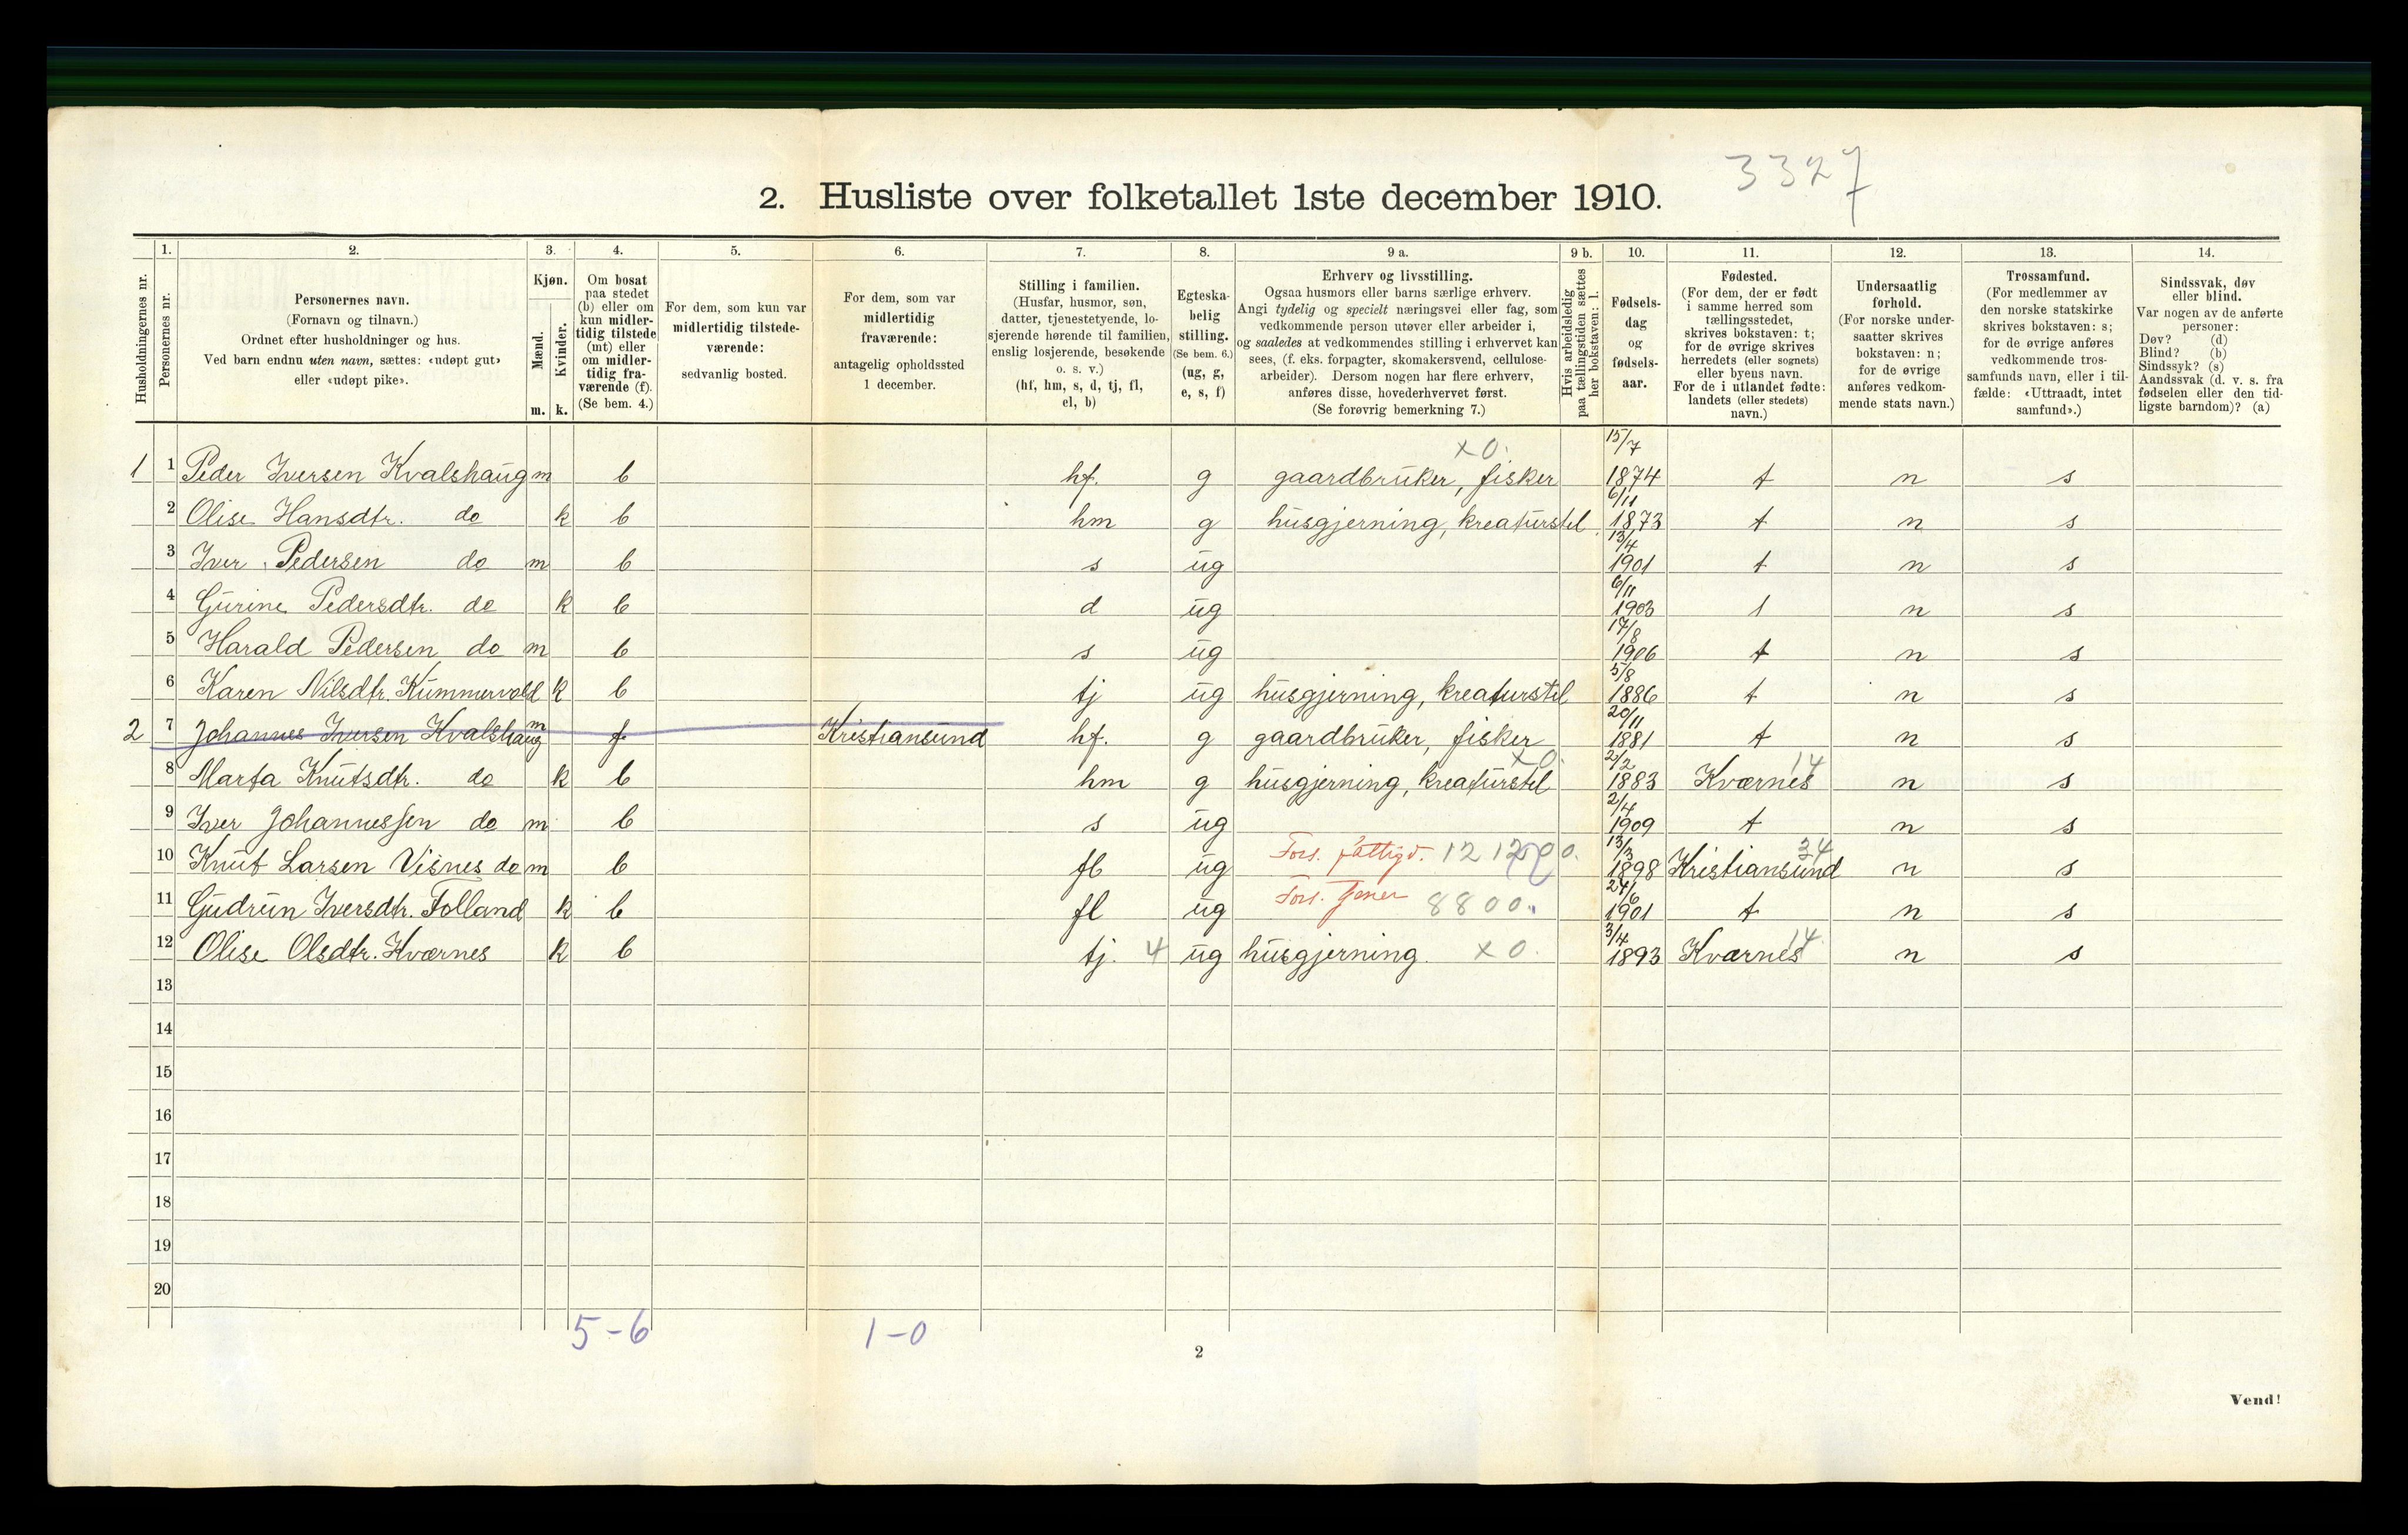 3327
2. Husliste over folketallet 1ste december 1910.
Husholdningernes nr.
1. Personernes nr.
2. Personernes navn. (Fornavn og tilnavn.) Ordnet efter husholdninger og hus. Ved barn endnu uten navn, sættes: «udøpt gut» eller «udøpt pike».
3. Kjøn. Mænd. m. Kvinder. k.
4. Om bosat paa stedet (b) eller om kun midlertidig tilstede (mt) eller om midlertidig fraværende (f). (Se bem. 4.)
5. For dem, som kun var midlertidig tilstedeværende: sedvanlig bosted.
6. For dem, som var midlertidig fraværende: antagelig opholdssted 1 december.
7. Stilling i familien. (Husfar, husmor, søn, datter, tjenestetyende, losjerende hørende til familien, enslig losjerende, besøkende o. s. v.) (hf, hm, s, d, tj, fl, el, b)
8. Egteskabelig stilling. (Se bem. 6.) (ug, g, e, s, f)
9 a. Erhverv og livsstilling. Ogsaa husmors eller barns særlige erhverv. Angi tydelig og specielt næringsvei eller fag, som vedkommende person utøver eller arbeider i, og saaledes at vedkommendes stilling i erhvervet kan sees, (f. eks. forpagter, skomakersvend, cellulosearbeider). Dersom nogen har flere erhverv, anføres disse, hovederhvervet først. (Se forøvrig bemerkning 7.)
9 b. Hvis arbeidsledig paa tællingstiden sættes her bokstaven: l.
10. Fødselsdag og fødselsaar.
11. Fødested. (For dem, der er født i samme herred som tællingsstedet, skrives bokstaven: t; for de øvrige skrives herredets (eller sognets) eller byens navn. For de i utlandet fødte: landets (eller stedets) navn.)
12. Undersaatlig forhold. (For norske undersaatter skrives bokstaven: n; for de øvrige anføres vedkommende stats navn.)
13. Trossamfund. (For medlemmer av den norske statskirke skrives bokstaven: s; for de øvrige anføres vedkommende trossamfunds navn, eller i tilfælde: «Uttraadt, intet samfund».)
14. Sindssvak, døv eller blind. Var nogen av de anførte personer: Døv? (d) Blind? (b) Sindssyk? (s) Aandssvak (d. v. s. fra fødselen eller den tidligste barndom)? (a)
1 1 Peder Iversen Kvalshaug m b hf. g gaardbruker, fisker x 0. 15/7 1874 t n s
2 Olise Hansdtr. do k b hm g husgjerning, kreaturstel 6/11 1873 t n s
3 Iver Pedersen do m b s ug 13/4 1901 t n s
4 Gurine Pedersdtr. do k b d ug 6/11 1903 t n s
5 Harald Pedersen do m b s ug 17/8 1906 t n s
6 Karen Nilsdtr. Kummervold k b tj ug husgjerning, kreaturstel 5/8 1886 t n s
2 7 Johannes Iversen Kvalshaug m f Kristiansund hf. g gaardbruker, fisker 20/11 1881 t n s
8 Marta Knutsdtr. do k b hm g husgjerning, kreaturstel x 0. 2/2 1883 Kværnes 14 n s
9 Iver Johannessen do m b s ug 2/4 1909 t n s
10 Knut Larsen Visnes do m b fl ug Fors. fattigv. 13/3 1898 Kristiansund 34 n s
11 Gudrun Iversdtr. Folland k b fl ug Fors. 8800. 24/6 1901 t n s
12 Olise Olsdtr. Kværnes k b tj. 4 ug husgjerning. x 0. 3/4 1893 Kværnes 14 n s
13
14
15
16
17
18
19
20
5-6 1-0
2
Vend!